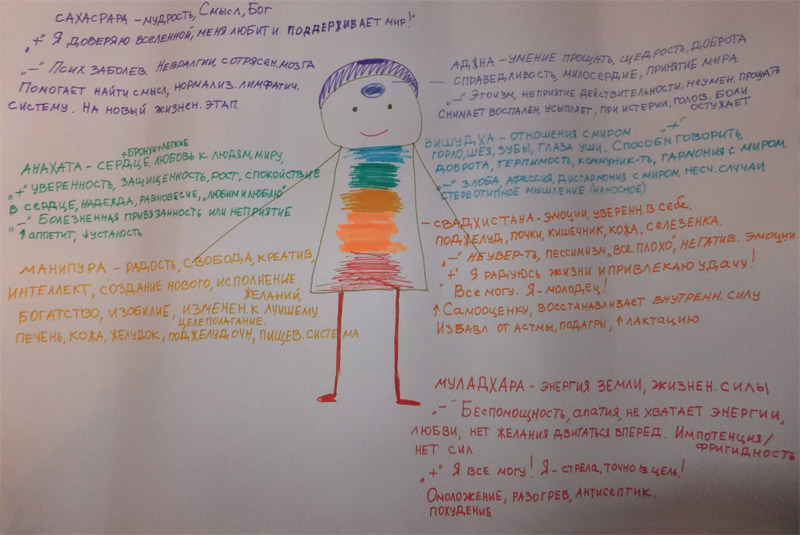 САХАСРАРА – МУДРОСТЬ, СМЫСЛ, БОГ
„+" Я ДОВЕРЯЮ ВСЕЛЕННОЙ, МЕНЯ ЛЮБИТ И ПОДДЕРЖИВАЕТ МИР!
„–" ПСИХ ЗАБОЛЕВ НЕВРАЛГИИ, СОТРЯСЕН. МОЗГА
ПОМОГАЕТ НАЙТИ СМЫСЛ, НОРМАЛИЗ. ЛИМФАТИЧ.
СИСТЕМУ. НА НОВЫЙ ЖИЗНЕН. ЭТАП.
АДЖНА – УМЕНИЕ ПРОЩАТЬ, ЩЕДРОСТЬ, ДОБРОТА
СПРАВЕДЛИВОСТЬ, МИЛОСЕРДИЕ, ПРИНЯТИЕ МИРА
„–" ЭГОИЗМ, НЕПРИЯТИЕ ДЕЙСТВИТЕЛЬНОСТИ, НЕУМЕН, ПРОЩАТЬ
СНИМАЕТ ВОСПАЛЕН, УСЫПЛЯЕТ, ПРИ ИСТЕРИИ, ГОЛОВ. БОЛИ
ОСТУЖАЕТ
+БРОНХИ+ЛЕГКИЕ
АНАХАТА – СЕРДЦЕ, ЛЮБОВЬ К ЛЮДЯМ, МИРУ,
„+" УВЕРЕННОСТЬ, ЗАЩИЩЕННОСТЬ, РОСТ, СПОКОЙСТВИЕ
В СЕРДЦЕ, НАДЕЖДА, РАВНОВЕСИЕ, „ЛЮБИМ И ЛЮБЛЮ"
„–" БОЛЕЗНЕННАЯ ПРИВЯЗАННОСТЬ ИЛИ НЕПРИЯТИЕ
↑ АППЕТИТ, ↓ УСТАЛОСТЬ
ВИШУДХА – ОТНОШЕНИЯ С МИРОМ „+"
ГОРЛО, ШЕЯ, ЗУБЫ, ГЛАЗА УШИ. СПОСОБН. ГОВОРИТЬ
ДОБРОТА, ТЕРПИМОСТЬ, КОММУНИК-ТЬ, ГАРМОНИЯ С МИРОМ
„–" ЗЛОБА, АГРЕССИЯ, ДИСГАРМОНИЯ С МИРОМ, НЕСЧ. СЛУЧАИ
СТЕРЕОТИПНОЕ МЫШЛЕНИЕ (НАНОСНОЕ)
МАНИПУРА – РАДОСТЬ, СВОБОДА, КРЕАТИВ,
ИНТЕЛЛЕКТ, СОЗДАНИЕ НОВОГО, ИСПОЛНЕНИЕ
ЖЕЛАНИЙ,
БОГАТСТВО, ИЗОБИЛИЕ, ИЗМЕНЕН. К ЛУЧШЕМУ
ЦЕЛЕПОЛАГАНИЕ.
ПЕЧЕНЬ, КОЖА, ЖЕЛУДОК, ПОДЖЕЛУДОЧН, ПИЩЕВ. СИСТЕМА
СВАДХИСТАНА – ЭМОЦИИ, УВЕРЕНН. В СЕБЕ.
ПОДЖЕЛУД, ПОЧКИ, КИШЕЧНИК, КОЖА, СЕЛЕЗЕНКА.
„–" НЕУВЕР-ТЬ, ПЕССИМИЗМ, „ВСЕ ПЛОХО", НЕГАТИВ. ЭМОЦИИ
„+" Я РАДУЮСЬ ЖИЗНИ И ПРИВЛЕКАЮ УДАЧУ!
ВСЕ МОГУ. Я – МОЛОДЕЦ!
↑ САМООЦЕНКУ, ВОССТАНАВЛИВАЕТ ВНУТРЕНН. СИЛУ
ИЗБАВЛ ОТ АСТМЫ, ПОДАГРЫ, ↑ ЛАКТАЦИЮ
МУЛАДХАРА – ЭНЕРГИЯ ЗЕМЛИ, ЖИЗНЕН. СИЛЫ
„–" БЕСПОМОЩНОСТЬ, АПАТИЯ, НЕ ХВАТАЕТ ЭНЕРГИИ,
ЛЮБВИ, НЕТ ЖЕЛАНИЯ ДВИГАТЬСЯ ВПЕРЕД. ИМПОТЕНЦИЯ/
ФРИГИДНОСТЬ
НЕТ СИЛ
„+" Я ВСЕ МОГУ! Я – СТРЕЛА, ТОЧНО В ЦЕЛЬ!
ОМОЛОЖЕНИЕ, РАЗОГРЕВ, АНТИСЕПТИК.
ПОХУДЕНИЕ